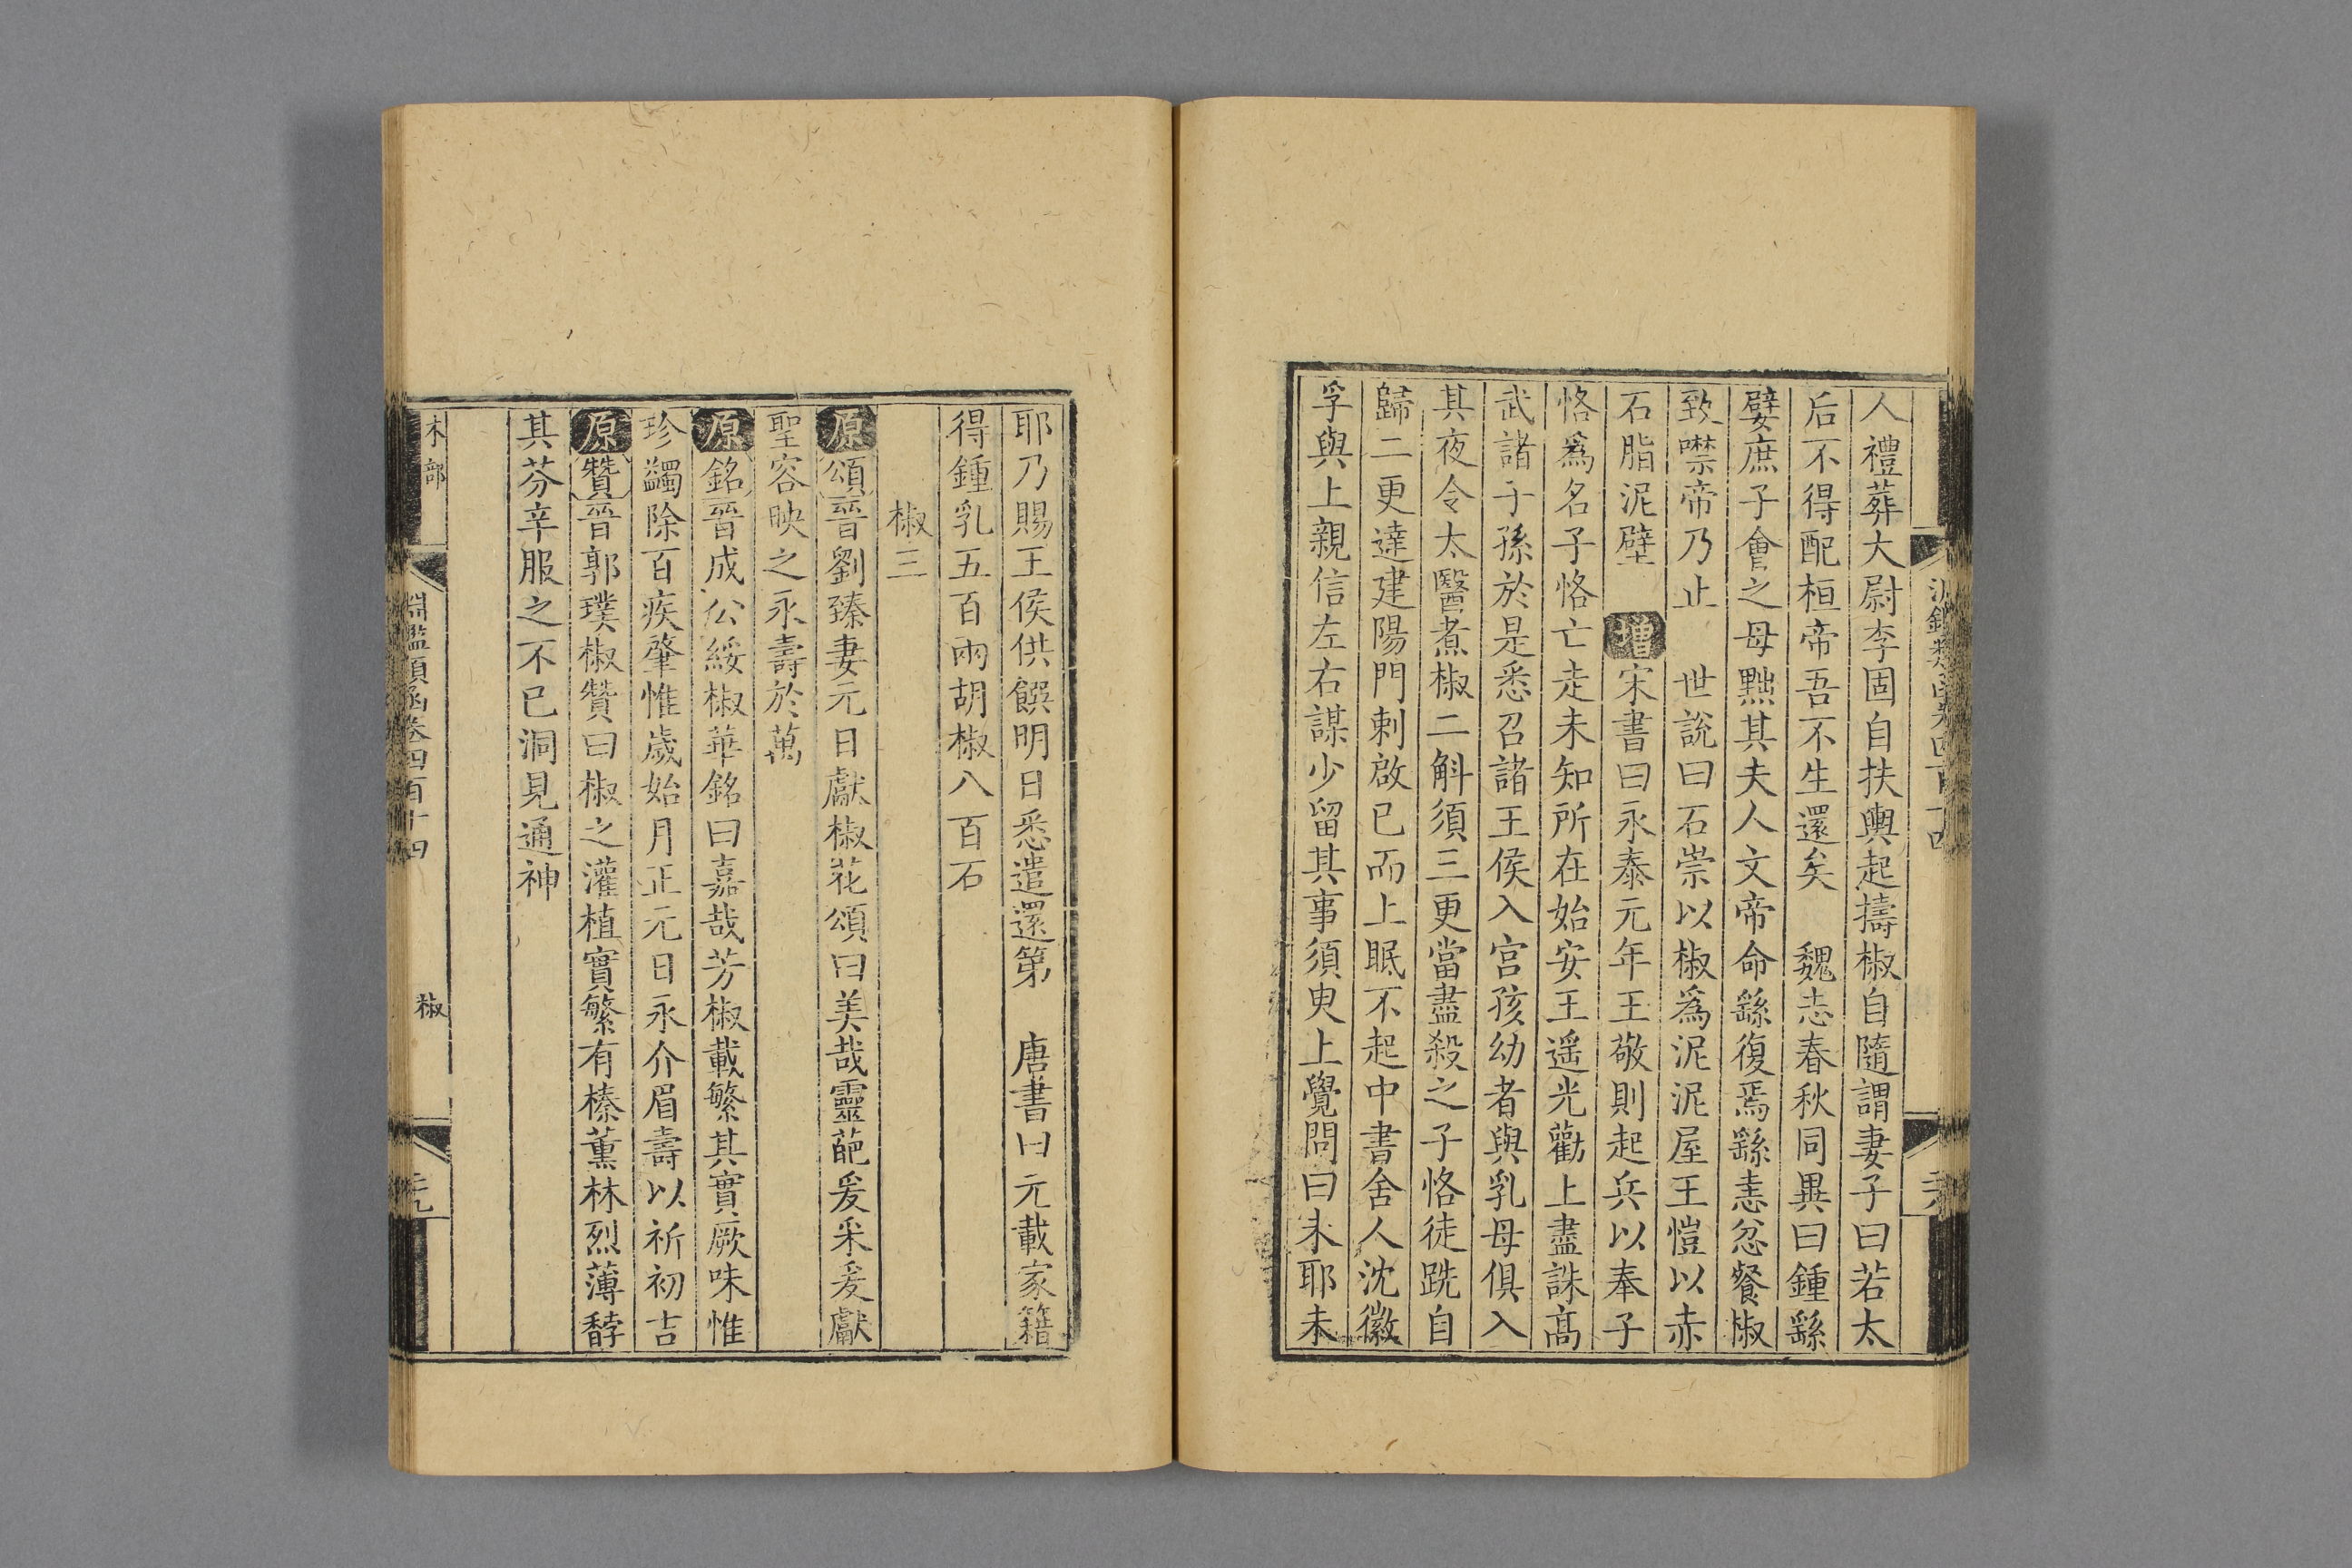 人禮葬大尉李固自扶輿起擣椒自隨謂妻子曰若太
后不得配桓帝吾不生還矣　魏志春秋同異曰鍾繇
嬖庶子會之母黜其夫人文帝命繇復焉繇恚忿餐椒
致噤帝乃止　世說曰石崇以椒爲泥泥屋王愷以赤
石脂泥壁　增宋書曰永泰元年王敬則起兵以奉子
恪爲名子恪亡走未知所在始安王遥光勸上盡誅髙
武諸子孫於是悉召諸王侯入宫孩幼者與乳母俱入
其夜令太醫煮椒二斛須三更當盡殺之子恪徒跣自
歸二更達建陽門刺啟已而上眠不起中書舍人沈徽
孚與上親信左右謀少留其事須臾上覺問曰未耶未
耶乃賜王侯供饌明日悉遣還第　唐書曰元載家籍
得鍾乳五百兩胡椒八百石
椒三
原頌晉劉臻妻元日獻椒花頌曰美哉靈葩爰釆爰獻
聖容映之永壽於萬
原銘晉成公綏椒華銘曰嘉哉芳椒載繁其實厥味惟
珍蠲除百疾肇惟歲始月正元日永介眉壽以祈初吉
原贊晉郭璞椒贊曰椒之灌植實繁有榛薰林烈薄馞
其芬辛服之不已洞見通神
木部
淵鑑類函卷四百十四
椒